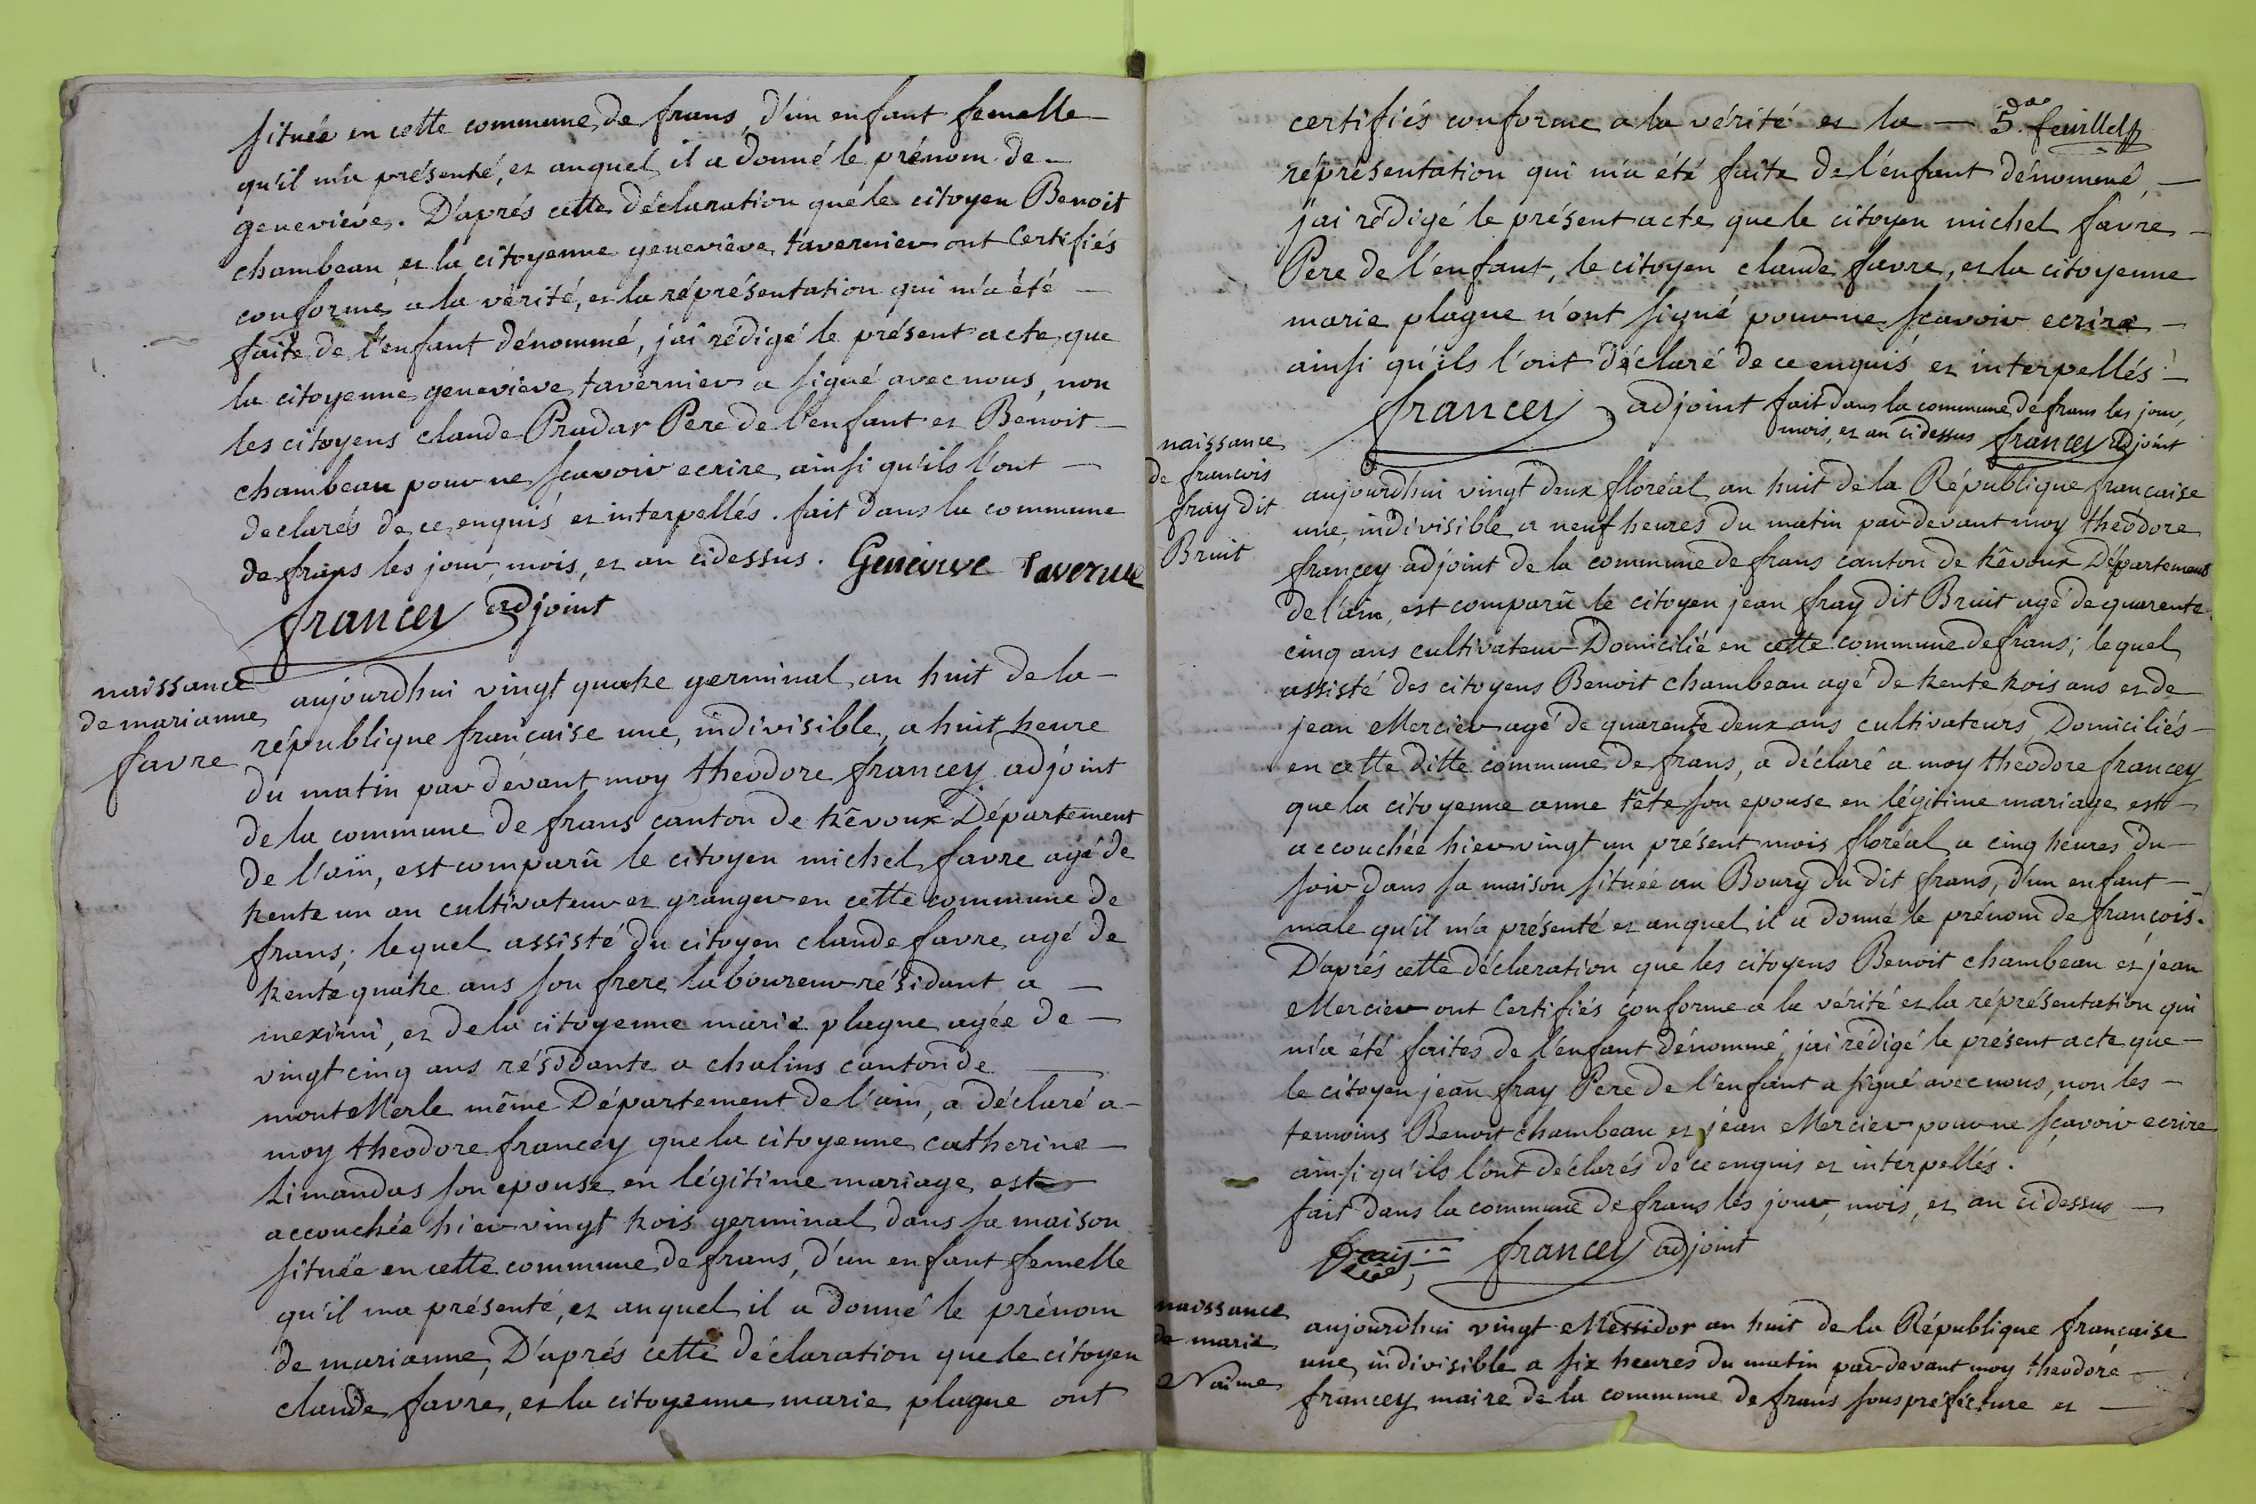 située en cette commune de frans, d'un enfant femelle
qu'il m'a présenté, et auquel il a donné le prénom de
geneviève. D'aprés cette déclaration que le citoyen Benoit
chambeau et la citoyenne geneviève tavernier ont Certifiés
conforme a la vérité, et la réprésentation qui m'a été
faite de l'enfant dénommé, j'ai rédigé le présent acte que
la citoyenne geneviève tavernier a signé avec nous, non
les citoyens claude Pradar Pere de l'enfant et Benoit
chambeau pour ne sçavoir ecrire ainsi qu'ils l'ont
declarés de ce enquis et interpellés. fait dans la commune
de frans les jour, mois, et an cidessus. Genevieve Tavernie
francey adjoint
naissance
de marianne
favre
aujourdhui vingt quatre germinal an huit de la
république française une, indivisible, a huit heure
du matin par dévant moy theodore francey adjoint
de la commune de frans canton de trévoux Département
de l'ain, est comparû le citoyen michel favre agé de
trente un an cultivateur et granger en cette commune de
frans; lequel assisté du citoyen claude favre agé de
trente quatre ans son frere laboureur résidant a
meximi, et de la citoyenne marie plagne agée de
vingt cinq ans résidante a chalins canton de
montMerle même Département de l'ain, a déclaré a
moy theodore francey que la citoyenne catherine
Limandas son epouse en légitime mariage est
accouchée hier vingt trois germinal dans sa maison
située en cette commune de frans, d'un enfant femelle
qu'il ma présenté, et auquel il a donné le prénom
de marianne, D'aprés cette déclaration que le citoyen
claude favre, et la citoyenne marie plagne ont
5. feuillet
certifiés conforme a la vérité et la
réprésentation qui m'a été faite de l'enfant dénommé,
j'ai rédigé le présent acte que le citoyen michel favre
Pere de l'enfant, le citoyen claude favre, et la citoyenne
marie plagne n'ont signé pour ne sçavoir ecrire
ainsi qu'ils l'ont déclaré de ce enquis et interpellés
francey adjoint fait dans la commune de frans les jour,
mois, et an cidessus francey adjoint
naissance
de francois
fray dit
Bruit
aujourdhui vingt deux floréal an huit de la République française
une, indivisible a neuf heures du matin par devant moy theodore
francey adjoint de la commune de frans canton de trévoux Département
de l'ain, est comparû le citoyen jean fray dit Bruit agé de quarente
cinq ans cultivateur Domicilié en cette commune de frans; lequel
assisté des citoyens Benoit chambeau agé de trente trois ans et de
jean Mercier agé de quarente deux ans cultivateurs Domiciliés
en cette ditte commune de frans, a déclaré a moy theodore francey
que la citoyenne anne tête son epouse en légitime mariage est
accouchée hier vingt un présent mois floréal a cinq heures du
soir dans sa maison située au Bourg du dit frans, d'un enfant
male qu'il m'a présenté et auquel il a donné le prénom de françois.
D'aprés cette déclaration que les citoyens Benoit chambeau et jean
Mercier ont Certifiés conforme a la vérité et la réprésentation qui
m'a été faites de l'enfant dénommé j'ai rédigé le présent acte que
le citoyen jean fray Pere de l'enfant a signé avec nous, non les
temoins Benoit chambeau et jean Mercier pour ne sçavoir ecrire
ainsi qu'ils l'ont déclarés de ce enquis et interpellés.
fait dans la commune de frans les jour, mois, et an cidessus
francey adjoint
naissance
de marie
Naime
aujourdhui vingt Messidor an huit de la République française
une, indivisible a six heures du matin par devant moy theodore
francey maire de la commune de frans souspréfecture et